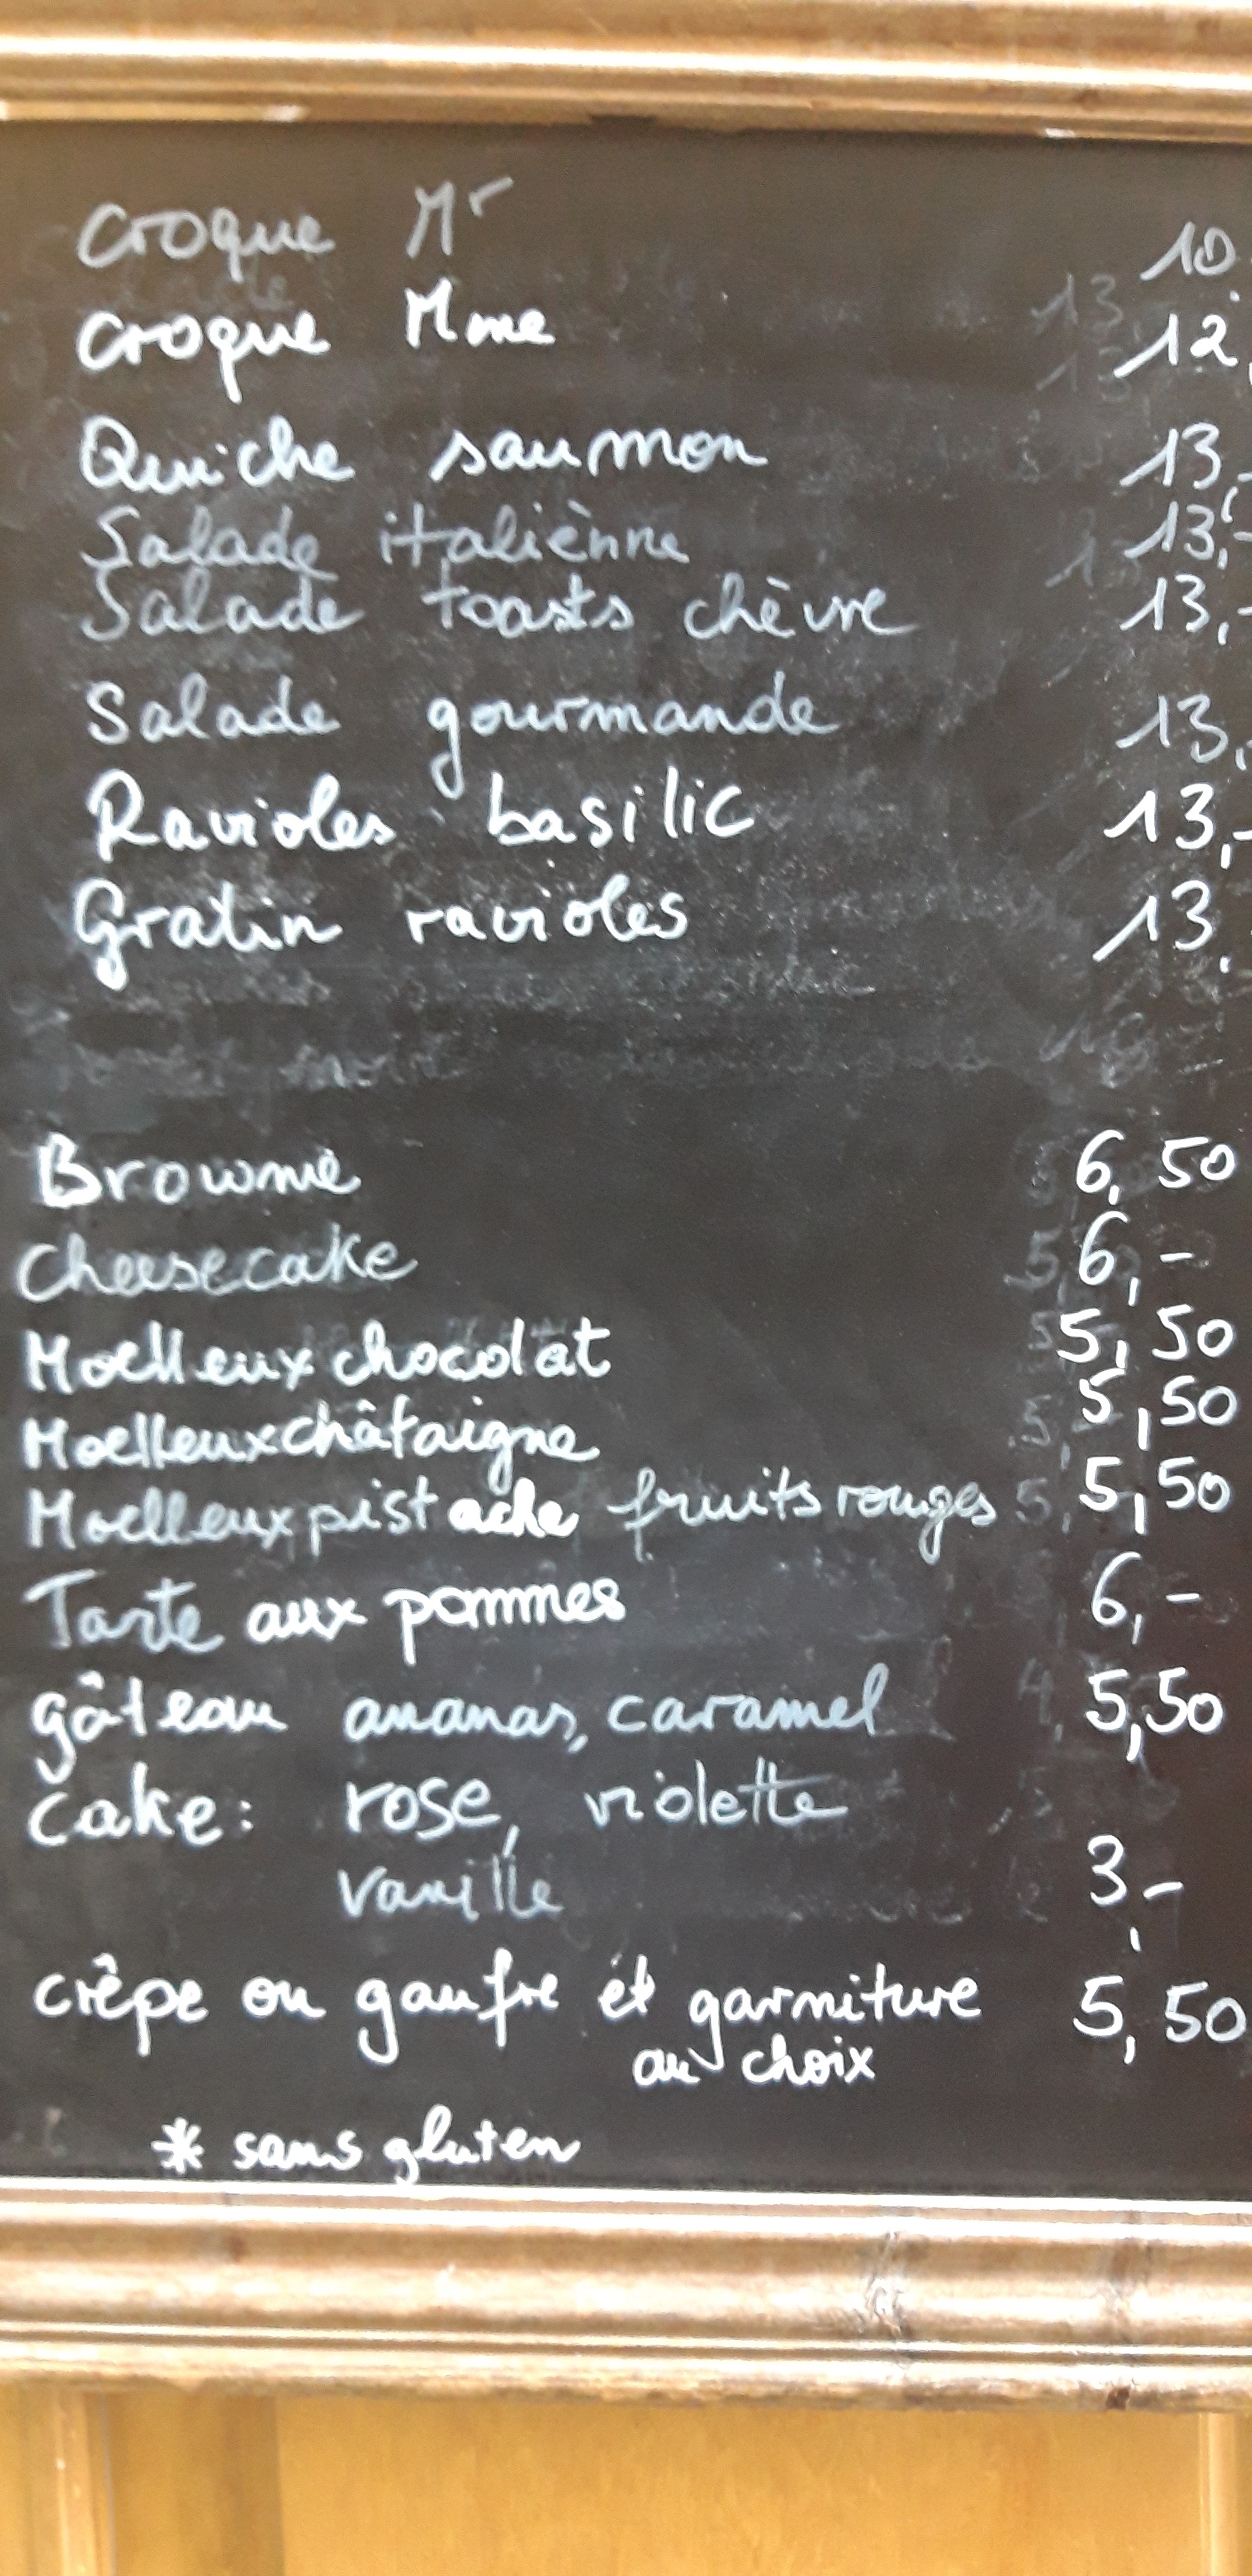 Croque Mr 10.
Croque Mme 12,
Quiche saumon 13,-
Salade italiènne 13,-
Salade toasts chèvre 13,-
Salade gourmande 13,
Ravioles basilic 13,-
Gratin ravioles 13.
Brownie 6,50
Cheesecake 6,-
Moelleux chocolat 5,50
Moelleux châtaigne 5,50
Moelleux pistache fruits rouges 5,50
Tarte aux pommes 6,-
gâteau ananas, caramel 5,50
Cake: rose, violette
vanille 3,-
crêpe ou gaufre et garniture 5,50
au choix
* sans gluten